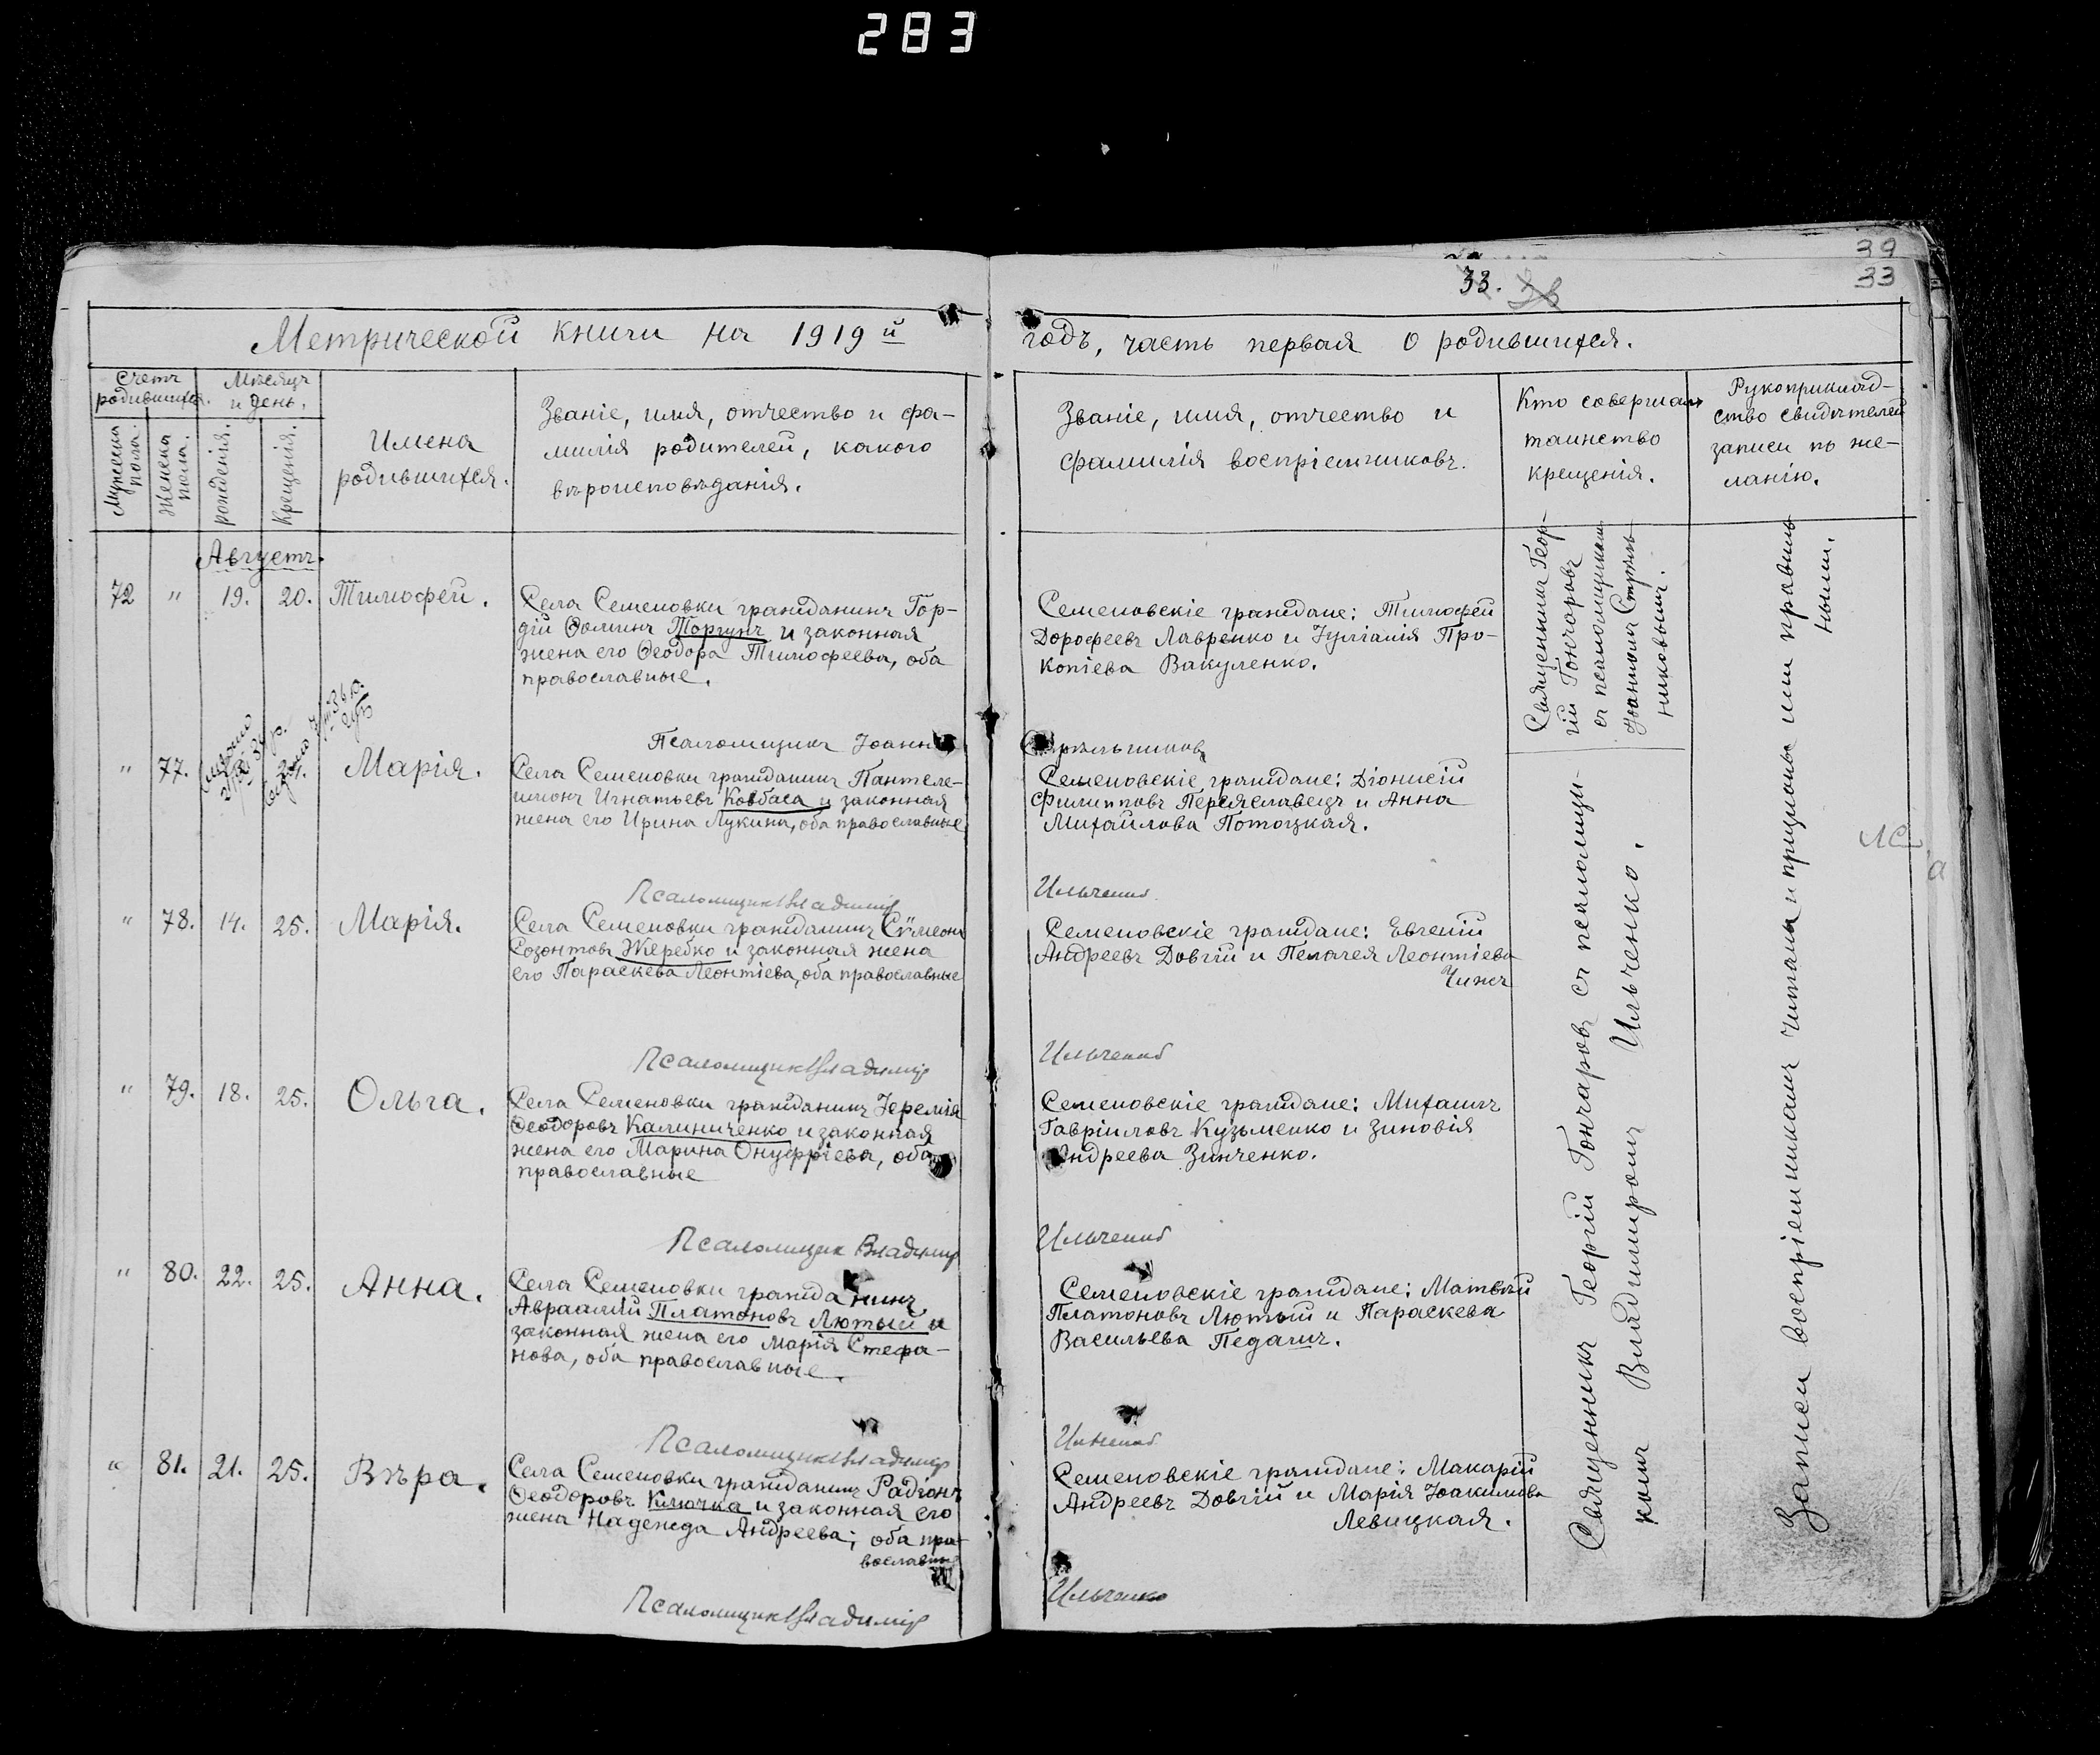 283
39
33
33.
Метрической книги на 1919й
годъ, часть первая о родившихся.
Счетъ родившихся.
Мѣсяцъ и день.
Мужеска пола.
Женска пола.
рожденія.
крещенія.
Имена
родившихся.
Званіе, имя, отчество и фа-
милія родителей, какого
вѣроисповѣданія.
Званіе, имя, отчество и
фамилія воспріемниковъ.
Кто совершалъ
таинство
крещенія.
Рукоприклад-
ство свидѣтелей
записи по же-
ланію.
Августъ.
72 " 19. 20. Тимофей.
Села Семеновки гражданинъ Гор-
дій Ѳоминъ Торгунъ и законная
жена его Ѳеодора Тимофеева, оба
православные.
Семеновскіе граждане: Тимофей
Дорофеевъ Лавренко и Іуліанія Про-
копіева Вакуленко.
Священникъ Геор-
гій Гончаровъ
съ псаломщикомъ
Іоанномъ Стрѣль-
никовымъ.
Псаломщикъ Іоаннъ
" 77. 24. Марія.
Села Семеновки гражданинъ Пантеле-
имонъ Игнатьевъ Ковбаса и законная
жена его Ирина Лукина, оба православные
Семеновскіе граждане: Діонисій
Филипповъ Переяславецъ и Анна
Михайлова Потоцкая.
Псаломщикъ Владимір
Ильченко
" 78. 14. 25. Марія.
Села Семеновки гражданинъ Сѵмеонъ
Созонтовъ Жеребко и законная жена
его Параскева Леонтіева, оба православные
Семеновскіе граждане: Евгеній
Андреевъ Довгій и Пелагея Леонтіева
Чижъ
Псаломщикъ Владимір
Ильченко
" 79. 18. 25. Ольга.
Села Семеновки гражданинъ Іеремія
Ѳеодоровъ Калиниченко и законная
жена его Марина Онуфріева, оба
православные
Семеновскіе граждане: Михаилъ
Гавріиловъ Кузьменко и Зиновія
Андреева Зинченко.
Псаломщик Владимір
Ильченко
" 80. 22. 25. Анна.
Села Семеновки гражданинъ
Авраамій Платоновъ Лютый и
законная жена его Марія Стефа-
нова, оба православные.
Семеновскіе граждане: Матвѣй
Платоновъ Лютый и Параскева
Васильева Педашъ.
Псаломщикъ Владимір
Ильченко
" 81. 21. 25. Вѣра.
Села Семеновки гражданинъ Радіонъ
Ѳеодоровъ Клочка и законная его
жена Надежда Андреева; оба пра-
вославны
Семеновскіе граждане: Макарій
Андреевъ Довгій и Марія Іоакимова
Левицкая.
Псаломщикъ Владимір
Ильченко
Священникъ Георгій Гончаровъ съ псаломщи-
комъ Владиміромъ Ильченко.
Записи воспріемникамъ читаны и признаны ими правиль-
ными.